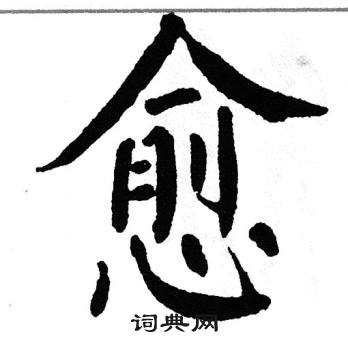 愈
词典网